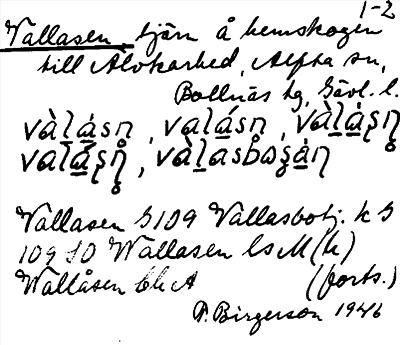 1-2
Vallasen tjärn å hemskogen
till Älvkarhed, Alfta sn,
Bollnäs tg, Gävl. l.
vàḷásn, valásn, vàḷáṣn
valáṣn̥,
Vallasen G109 Vallasbotj. k G
109 SO Wallasen lsM(k)
Wallåsen (forts.)
P. Birgerson 1946